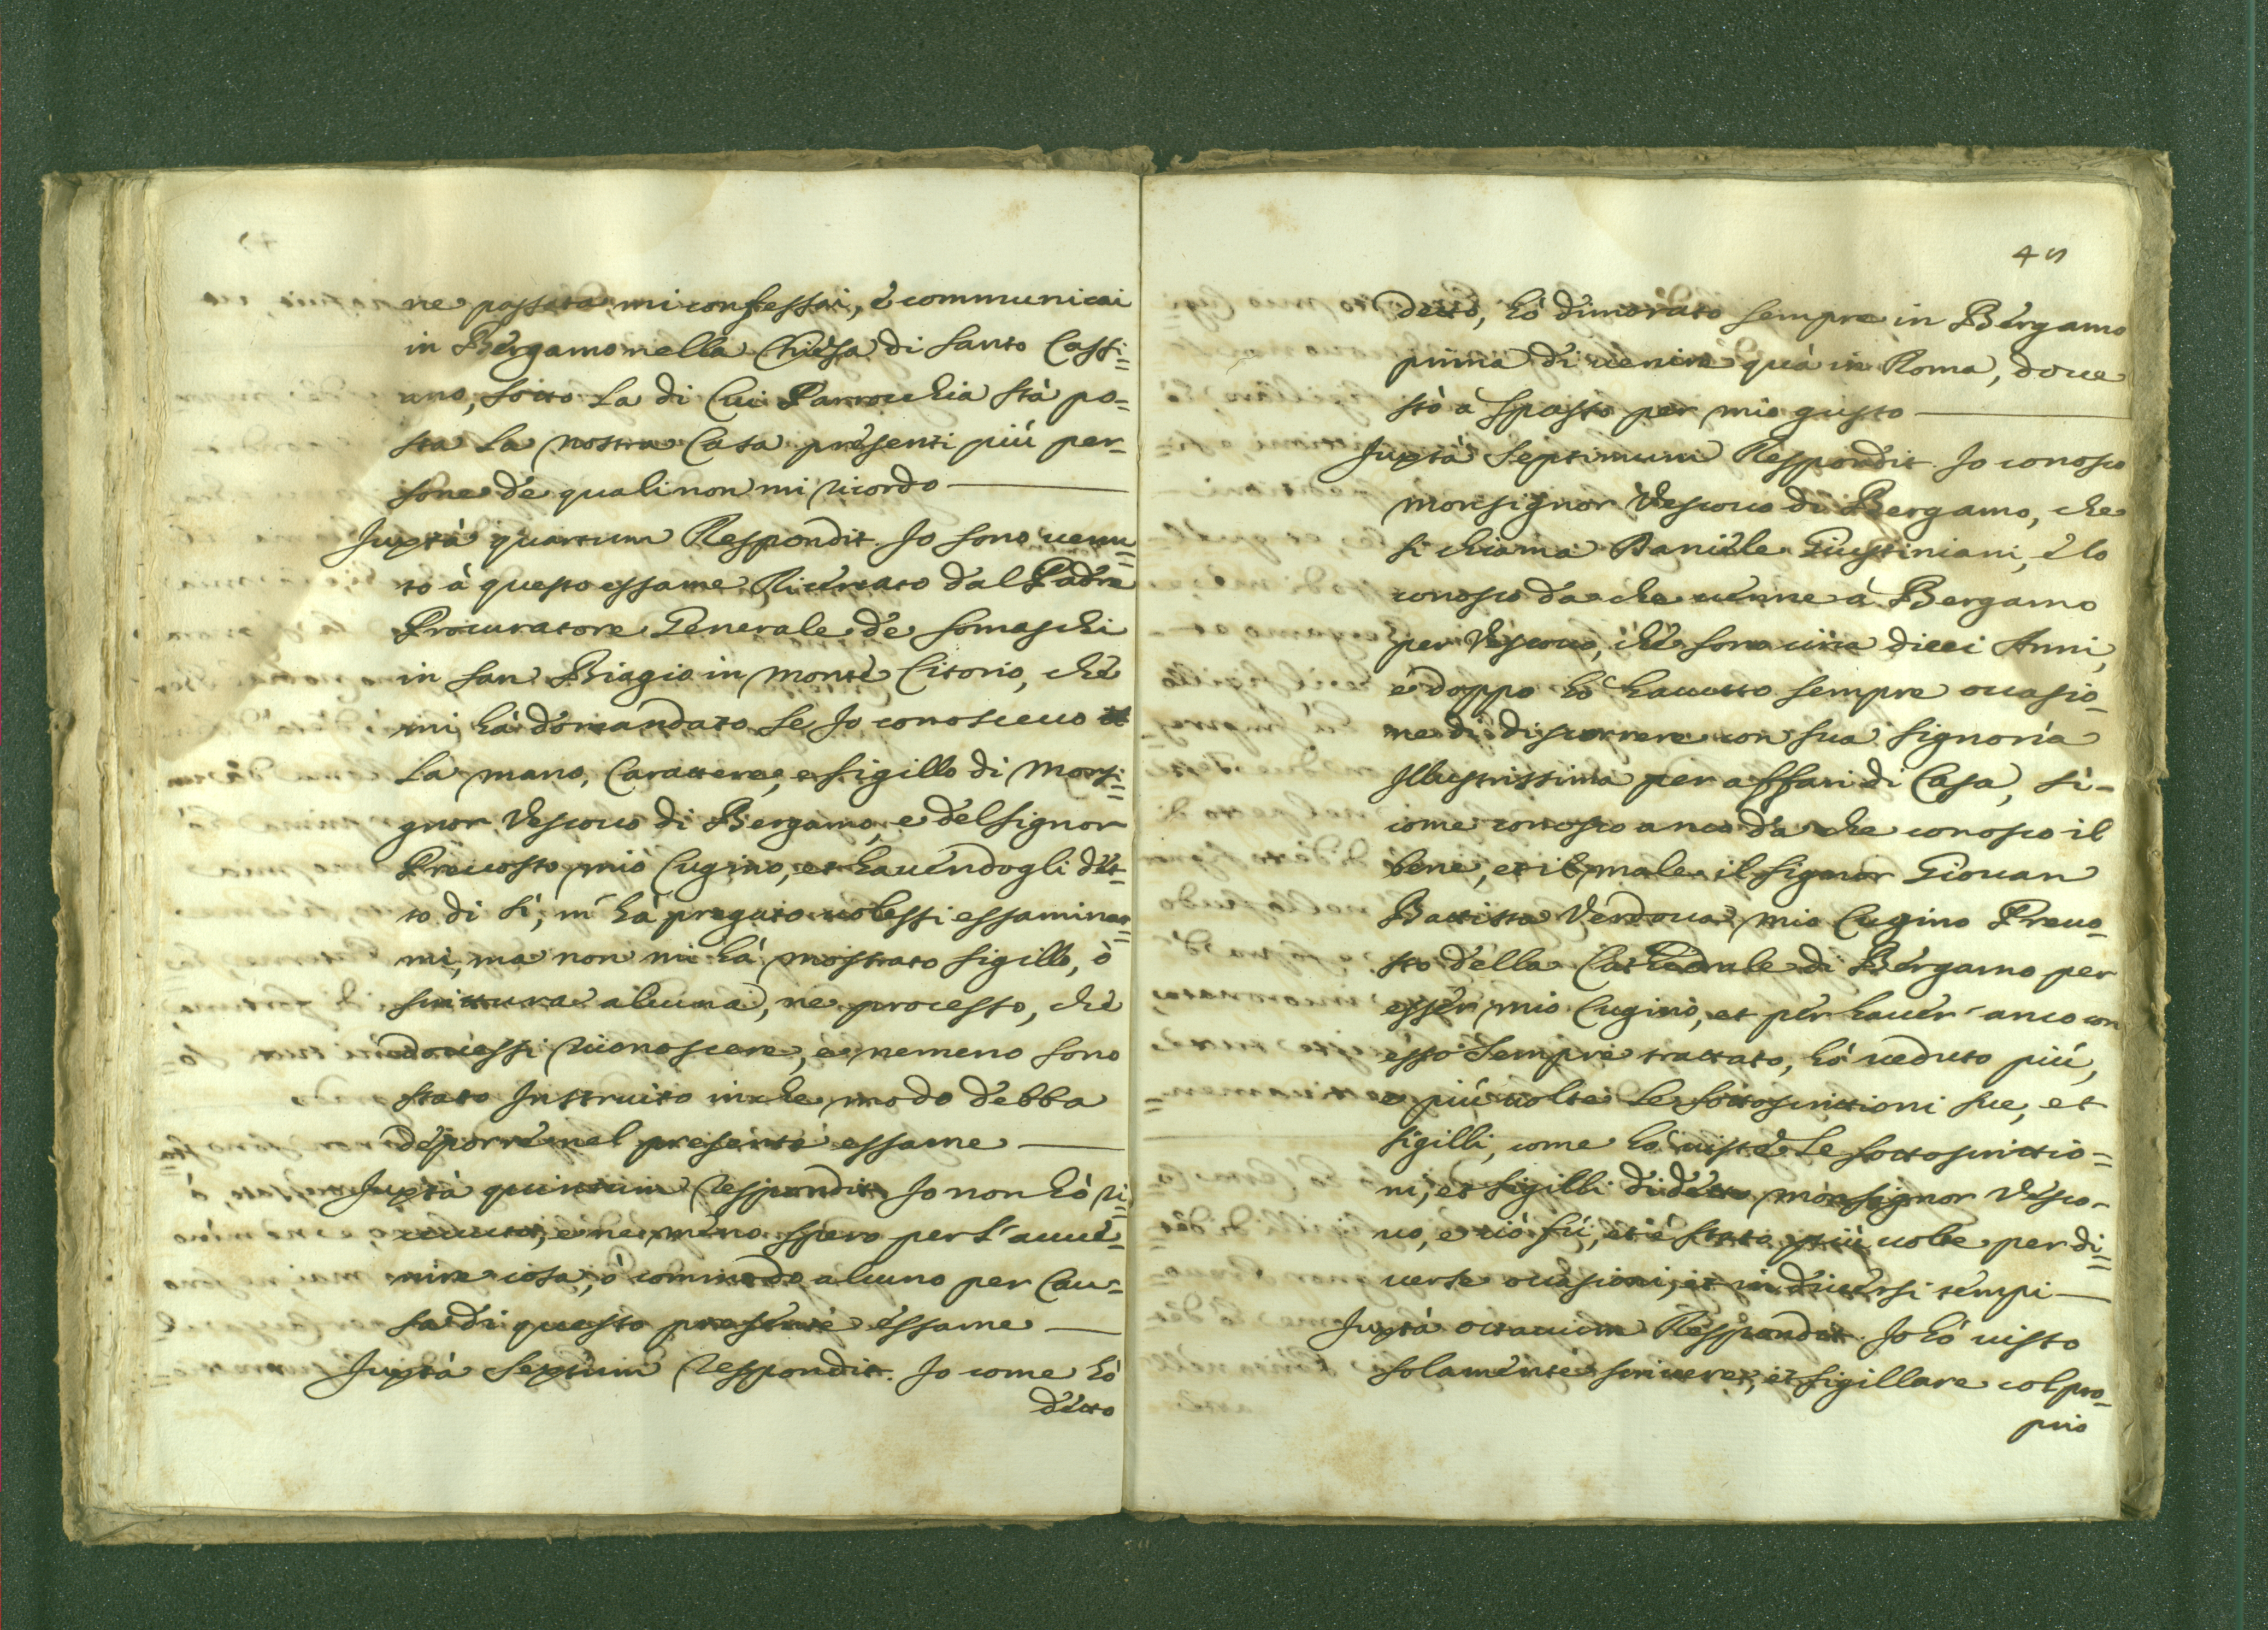 ne passata mi confessai, è communicai
in Bergamo nella Chiesa di Santo Cassi=
ano, sotto la di Cui Parrochia stà po=
sta la nostra Casa presenti più per-
sone de quali non mi ricordo
Juxtà quartum Respondit. Jo sono uenu=
to à questo essame Ricercato dal Padre
Procuratore Generale de Somaschi
in San Biagio in Monte Citorio, che
mi hà domandato se Jo conosceuo
la mano, Carattere, e sigillo di Monsi=
gnor Vescouo di Bergamo, e del Signor
Preuosto mio Cugino, et hauendogli det-
to di sì, m'hà pregato uolessi essaminar=
mi, ma non mi hà mostrato sigillo, ò
scrittura alcuna, ne processo, che
douessi riconoscere, e nemeno sono
stato Instruito in che modo debba
deporre nel presente essame
Juxtà quintum Respondit Jo non hò ri=
ceuuto, e ne meno spero per l'auue=
nire cosa, ò commodo alcuno per Cau=
sa di questo presente essame
Juxtà Sextum Respondit. Jo come hò
detto
45
detto, hò dimorato sempre in Bergamo
prima di uenire quà in Roma, doue
stò à spasso per mio gusto
Juxtà Septimum Respondit Jo conosco
Monsignor Vescouo di Bergamo, che
si chiama Daniele Giustiniani, è lo
conosco da che uenne à Bergamo
per Vescouo, che sono circa dieci Anni,
è doppo hò hauutto sempre occasio-
ne di discorrere con sua Signoria
Illustrissima per affari di Casa, sì-
come conosco anco da che conosco il
bene, et il male il Signor Giouan
Battista Verdoua mio Cugino Preuo-
sto della Cathedrale di Bergamo per
esser mio Cugino, et per hauer anco con
esso sempre trattato, hò ueduto più,
e più uolte le sottoscrittioni sue, et
sigilli, come hò uiste le sottoscrittio=
ni, et sigilli di detto Monsignor Vesco-
uo, e ciò fù, et è stato più uolte per di=
uerse occasioni, et in diuersi tempi
Juxtà octauum Respondit. Jo hò uisto
solamente scriuere, et sigillare col pro-
prio